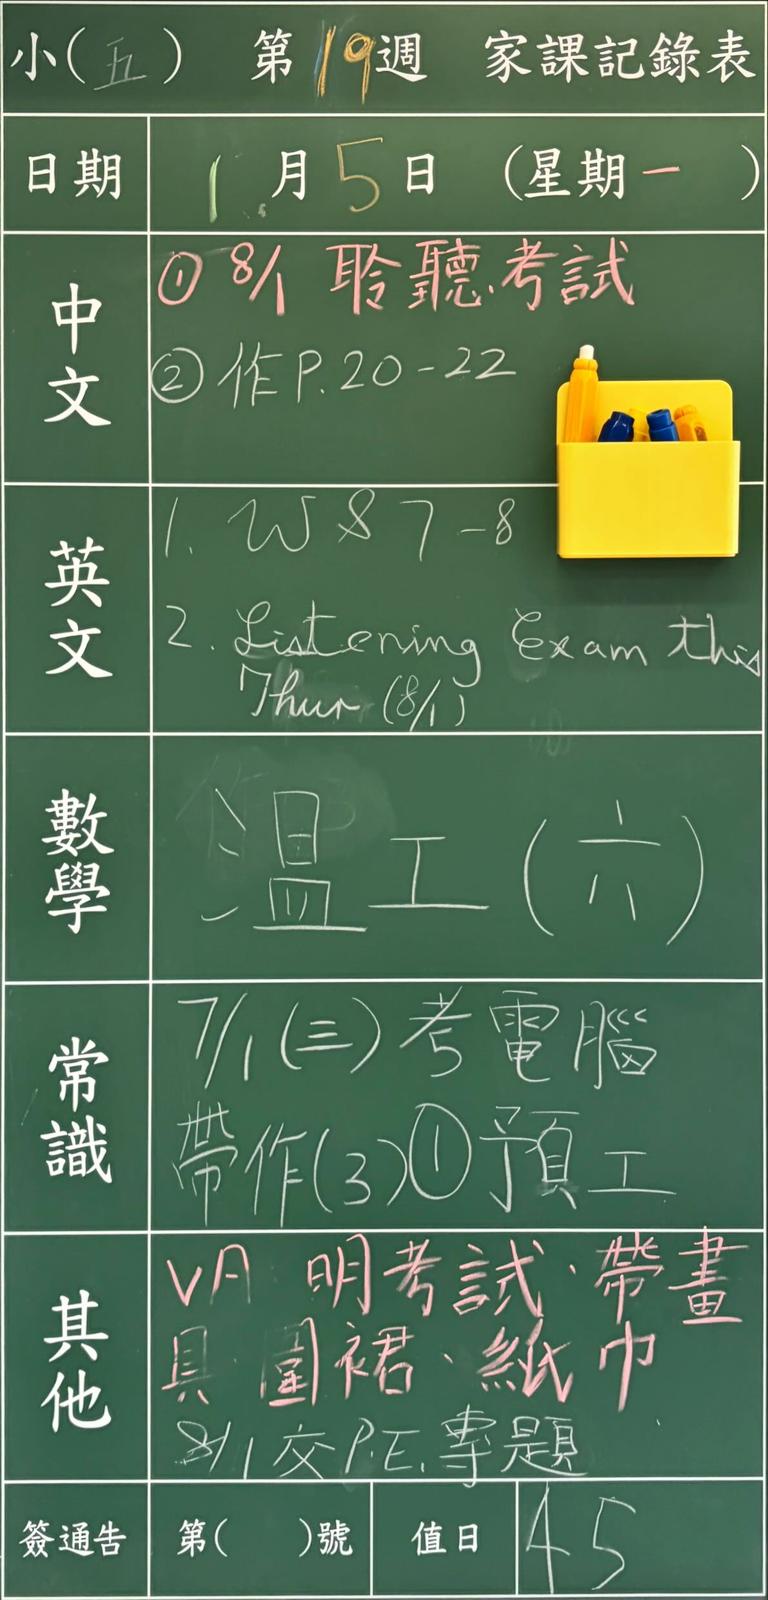 小(五) 第19週 家課記錄表
日期 1月5日 (星期一)
中文
① 8/1 聆聽考試
② 作P.20-22
英文
1. WS 7-8
2. Listening Exam this
Thur (8/1)
數學
溫工(六)
常識
7/1(三)考電腦
帶作(3)①預工
其他
VA 明考試、帶畫
具、圍裙、紙巾
8/1交P.E.專題
簽通告 第( )號 值日 45